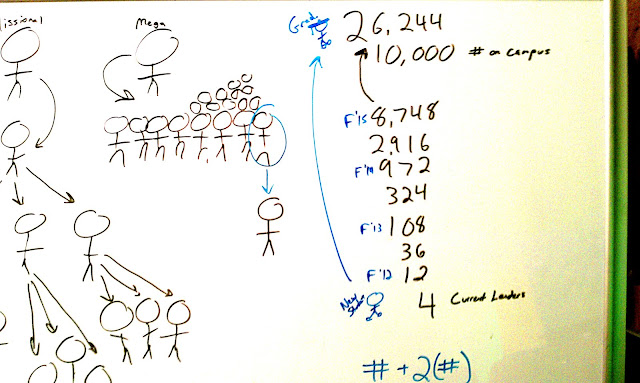 Missional
Mega
Grad
26,244
10,000 # on campus
F'15 8,748
2,916
F'14 972
324
F'13 108
36
F'12 12
New Student
4 Current Leaders
# + 2(#)